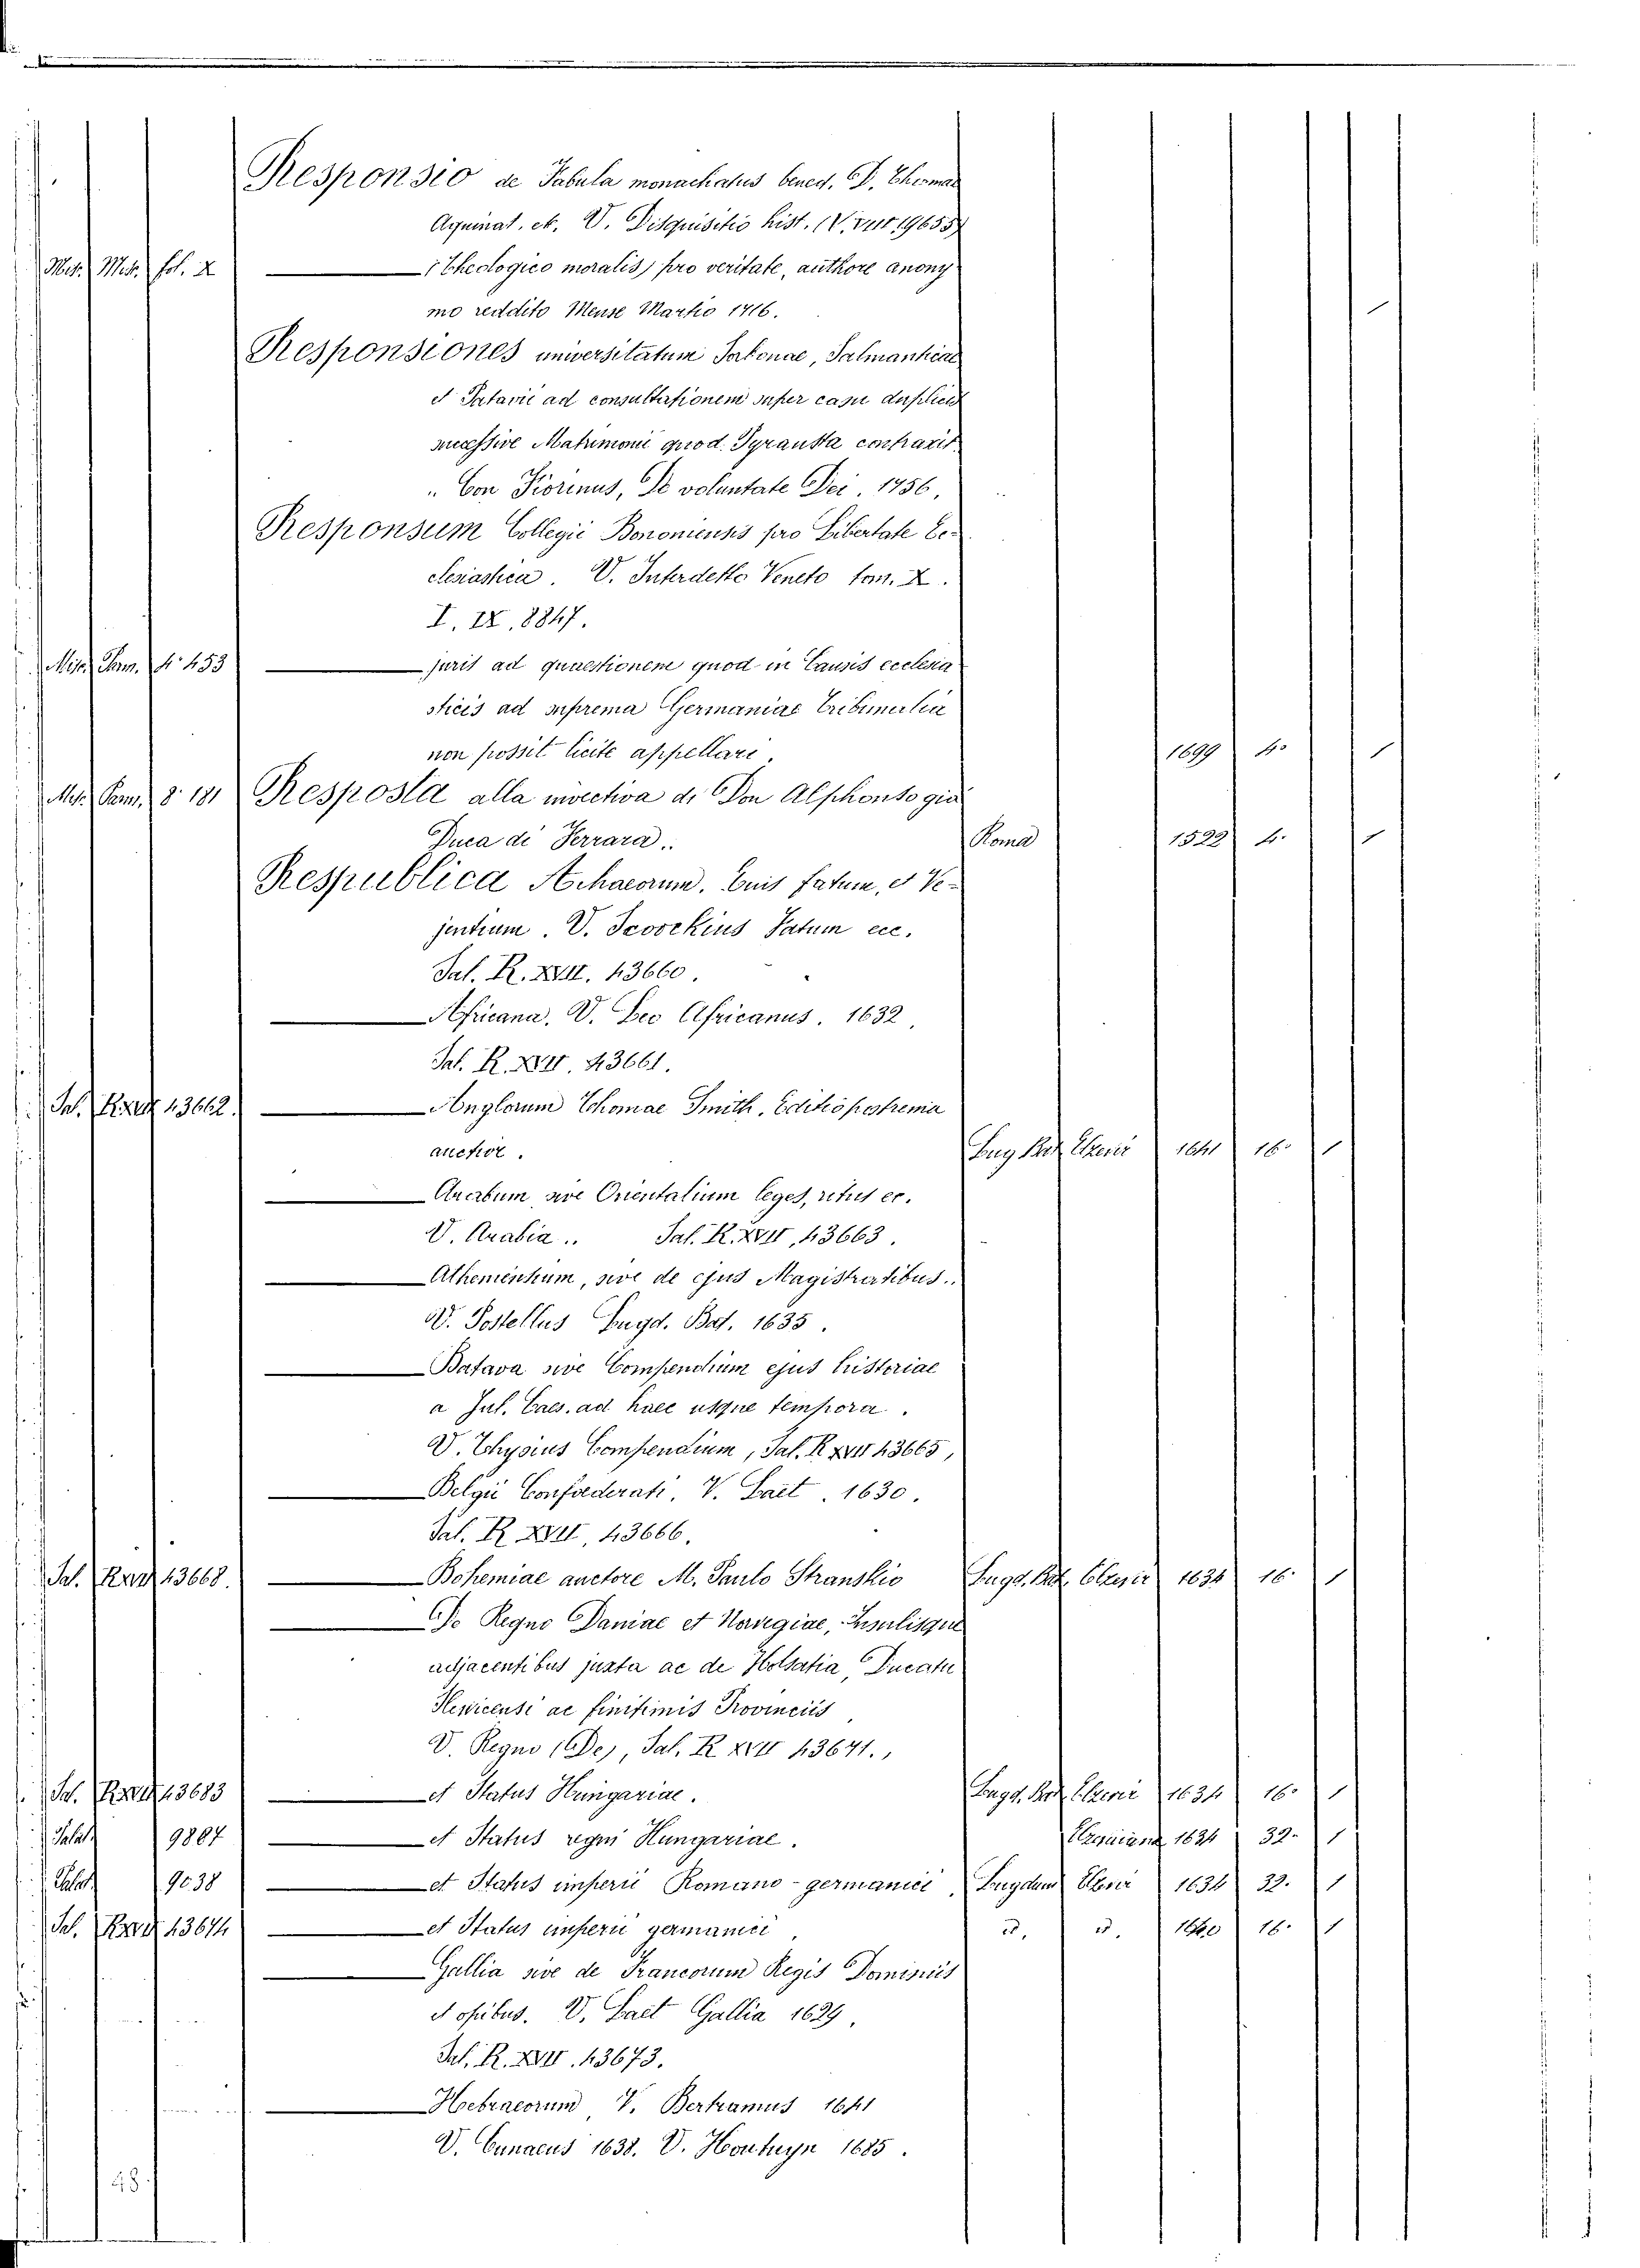 Responsio de Tabula monachatus bened. D. Thomae
Aquinat. et. V. Disquisitio hist. (V. VIII. 19655)
Met. Met. fol. X ——— (Theologico moralis) pro veritate, authore anony
mo reddito Mense Martio 1716.
Responsiones universitatum Sorbonae, Salmanticae
et Patavii ad consultationem super casu duplicis
successive Matrimonii quod Tyrausta contraxit
" Con Fiorinus, De voluntate Dei. 1756,
Responsum Collegii Bononiensis pro Libertate Ec-
clesiastica. V. Interdetto Veneto tom. X.
I. IX. 8847.
Misc. Pam. 4° 453 ——— juris ad quaestionem quod in Causis ecclesia
sticis ad suprema Germaniae tribunalia
non possit licite appellari. 1699 4° 1
Met. Pam. 8° 181 Resposta alla invectiva di Don Alphonso già
Duca di Ferrara.. Roma 1522 4. 1
Respublica Achaeorum. Cuis fatum, et Ve-
jentium. V. Scoockius Fatum ecc.
Sal. R. XVII. 43660.
——— Africana. V. Leo Africanus. 1632.
Sal. R. XVII. 43661.
Sal. R XVII 43662. ——— Anglorum Thomae Smith. Editio postrema
auctior. Lug. Bat. Elzevir 1641 16° 1
——— Arabum sive Orientalium leges, ritus ec.
V. Arabia.. Sal. R. XVII, 43663.
——— Atheniensium, sive de ejus Magistratibus..
V. Postellus Lugd. Bat. 1635.
——— Batava sive Compendium ejus historiae
a Jul. Caes. ad haec usque tempora.
V. Thysius Compendium, Sal. R XVII 43665,
——— Belgii Confoederati. V. Laet. 1630.
Sal. R XVII, 43666.
Sal. R XVII 43668. ——— Bohemiae auctore M. Paulo Stranskio Lugd. Bat. Elzevir 1634 16° 1
——— De Regno Daniae et Norvegiae, Insulisque
adjacentibus juxta ac de Holsatia, Ducatu
Slesvicensi ac finitimis Provinciis
V. Regno (De), Sal. R XVII 43671.,
Sal. R XVII 43683 ——— et Status Hungariae. Lugd. Bat. Elzevir 1634 16° 1
Salat. 9887 ——— et Status regni Hungariae. Elzeviriana 1634 32. 1
Salat. 9038 ——— et Status imperii Romano-germanici, Lugduni Elzevir 1634 32. 1
Sal. R XVII 43674 ——— et Status imperii germanici, id. id. 1640 16. 1
——— Gallia sive de Francorum Regis Dominiis
et opibus. V. Laet Gallia 1629,
Sal. R. XVII. 43673.
——— Hebraeorum, V. Bertramus 1641
V. Cunaeus 1638. V. Houtuyn 1685.
48.